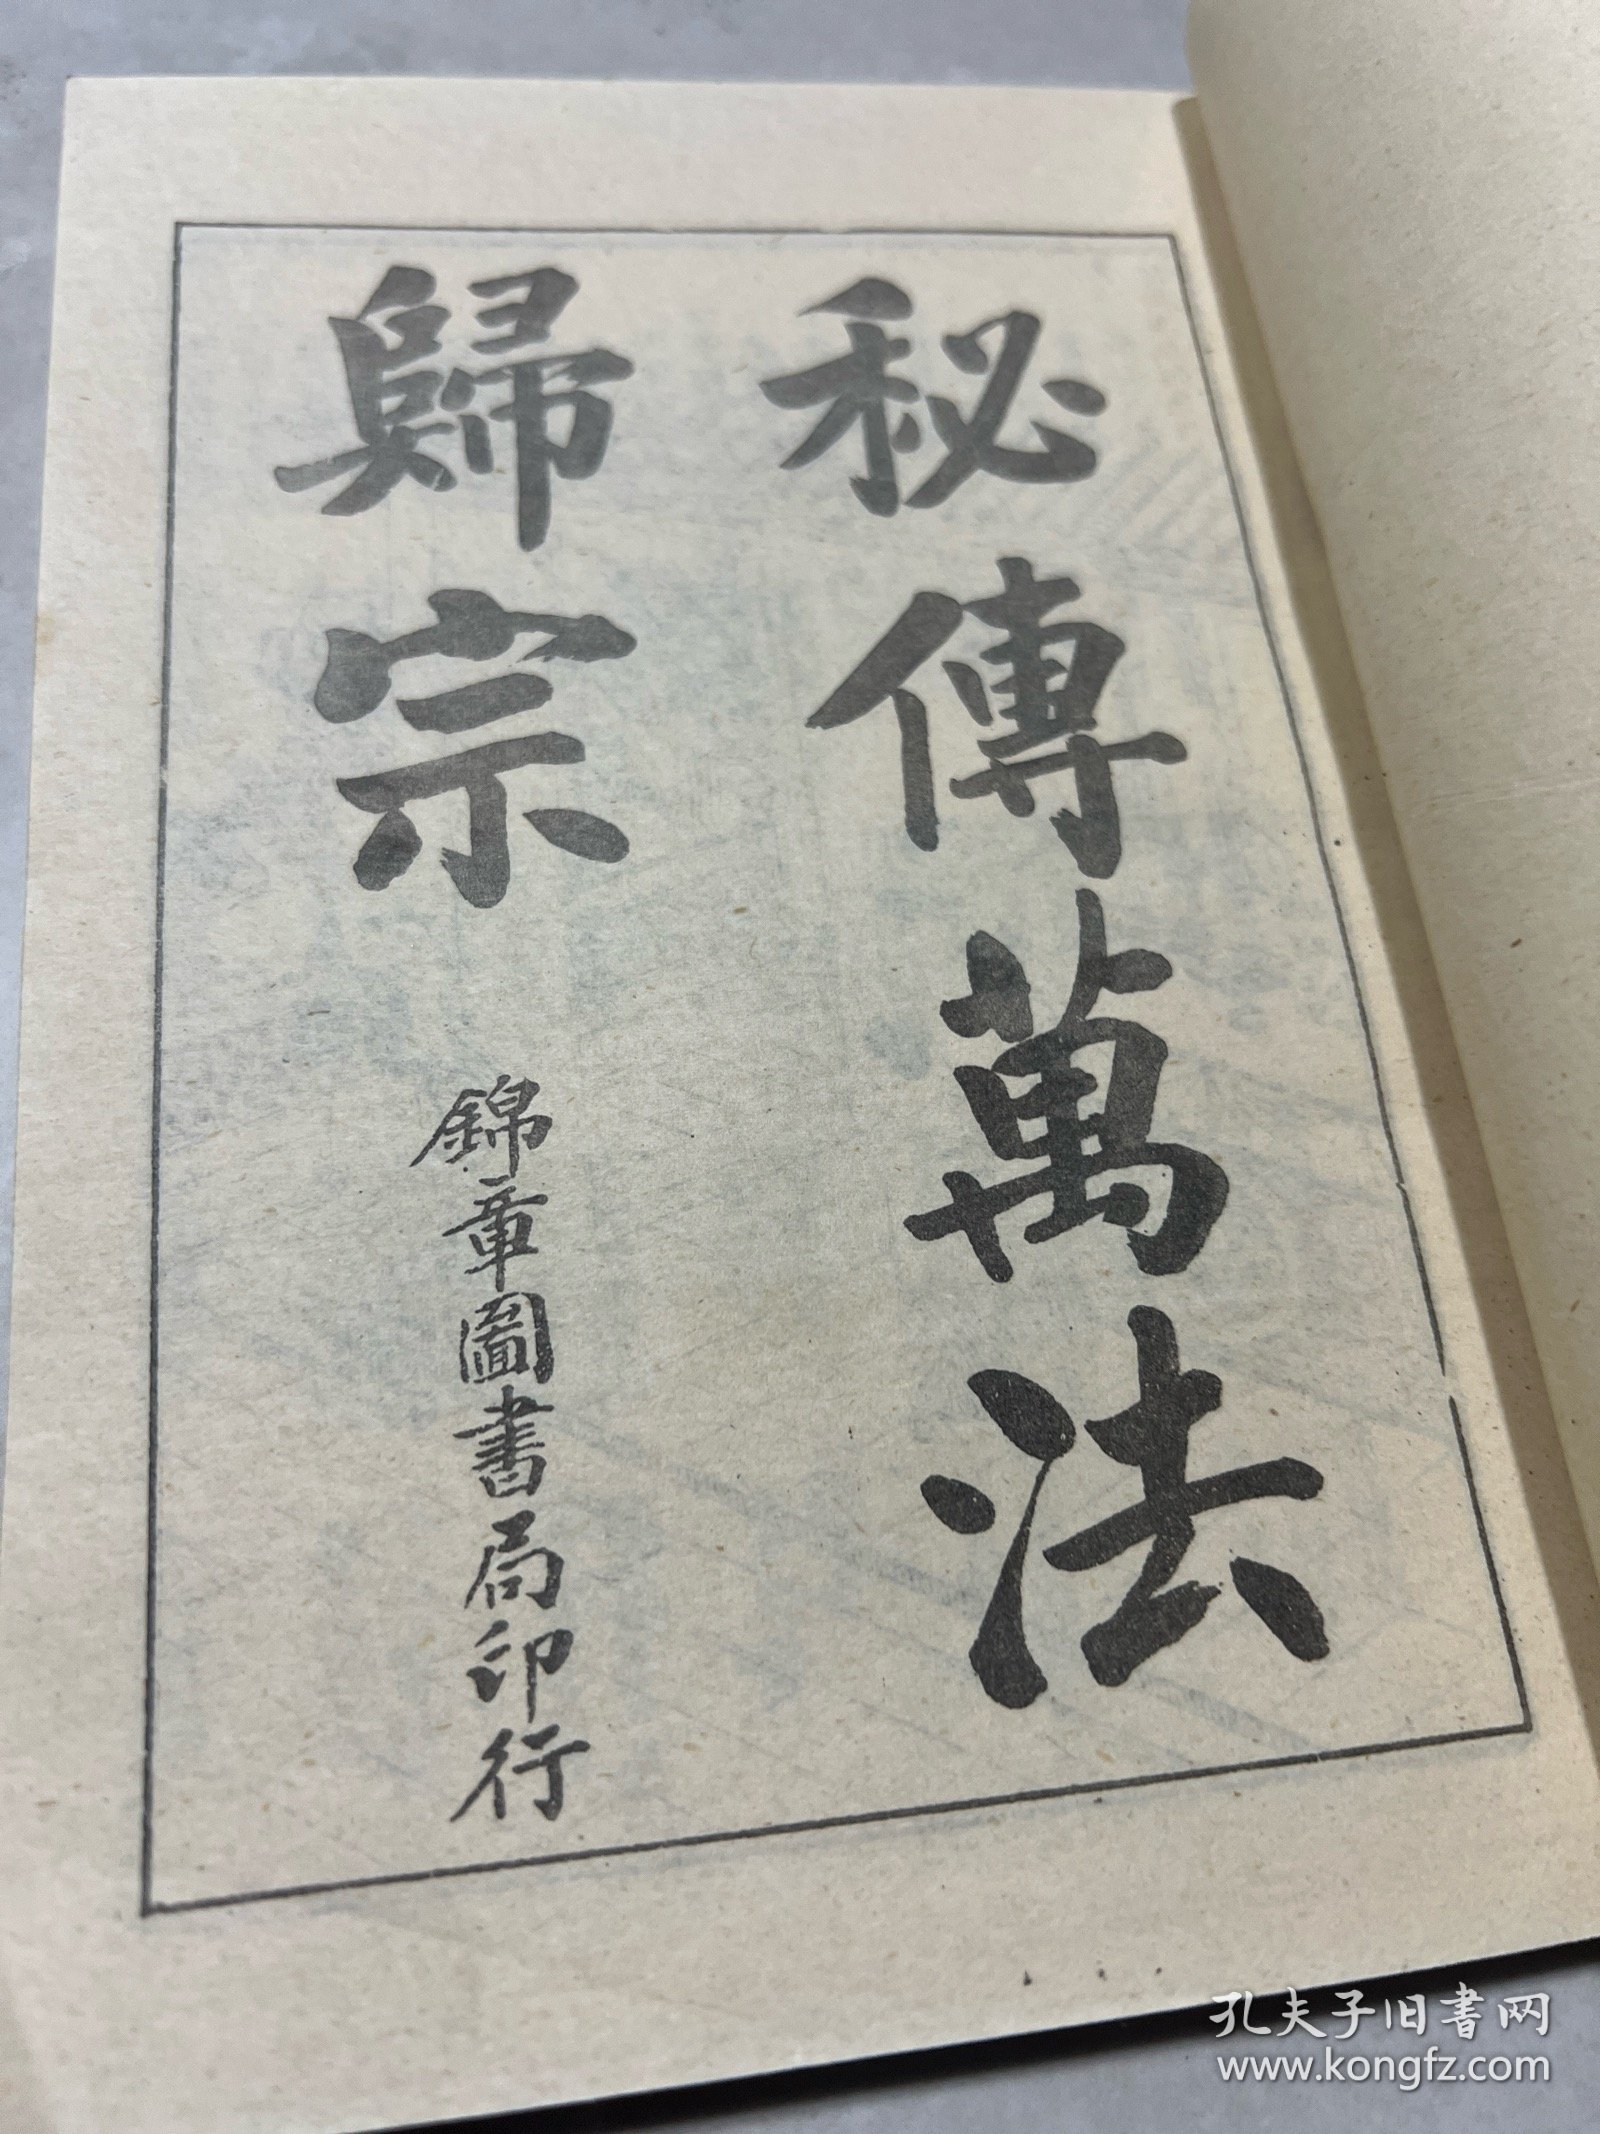 秘傳萬法
歸宗
錦章圖書局印行
孔夫子旧书网
www.kongfz.com